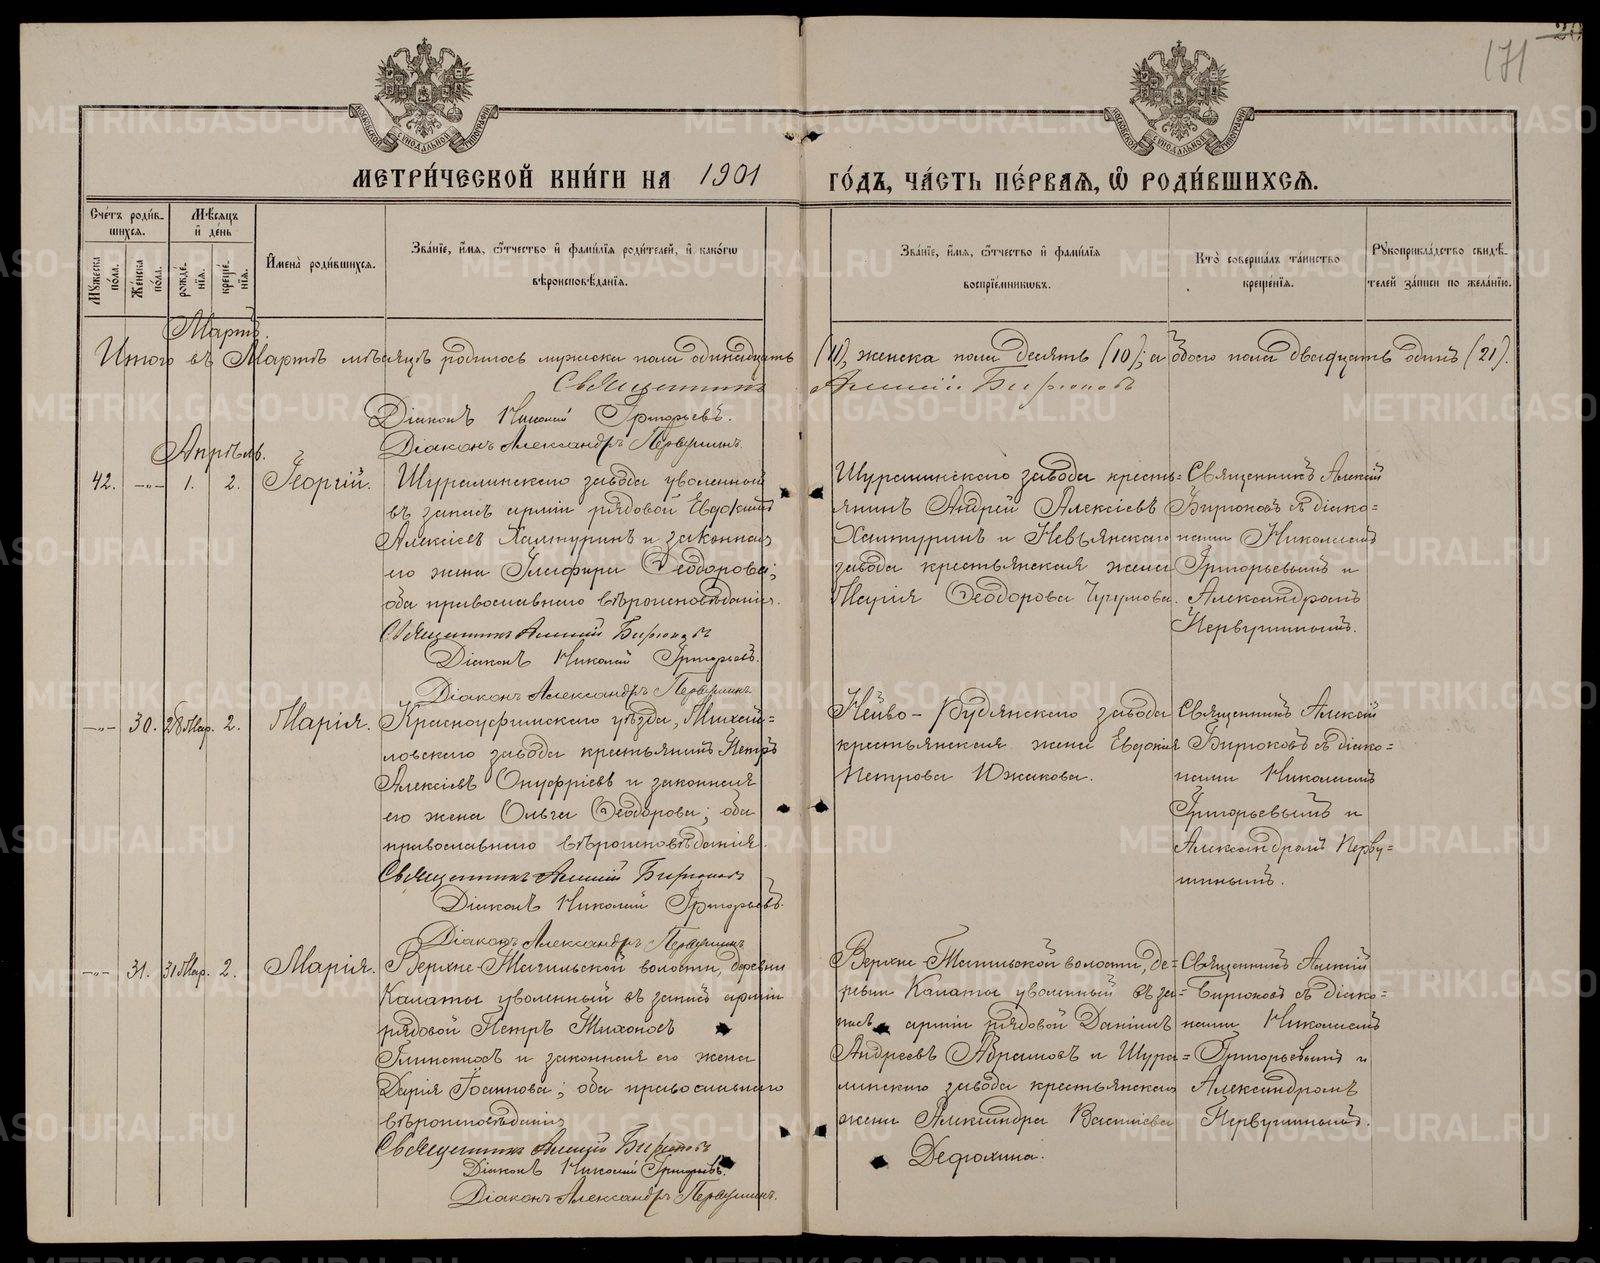 171
МЕТРИ́ЧЕСКОЙ КНИ́ГИ НА 1901 ГО́ДЪ, ЧА́СТЬ ПЕ́РВАЯ, Ѡ҆ РОДИ́ВШИХСЯ.
Сче́тъ роди́в-
шихся.
Мѣ́сяцъ
и҆ де́нь
Мꙋжеска
по́ла.
Же́нска
по́ла.
рожде́-
нїѧ.
креще́-
нїѧ.
И҆мена̀ роди́вшихсѧ.
Зва́нїе, и҆́мѧ, ѻ҆́тчество и҆ фами́лїѧ роди́телей, и҆ како́гѡ
вѣроисповѣ́данїѧ.
Зва́нїе, и҆́мѧ, ѻ҆́тчество и҆ фами́лїѧ
воспрїе́мникѡвъ.
Кто̀ соверша́лъ та́инство
креще́нїѧ.
Рꙋкоприкла́дство свидѣ́-
телей за́писи по жела́нїю.
Мартъ.
Итого въ Мартѣ мѣсяцѣ родилось мужска пола одинадцать (11), женска пола десять (10); а обоего пола двадцать одинъ (21).
Священникъ Алексій Бирюковъ
Діаконъ Николай Григорьевъ.
Діаконъ Александръ Первушинъ.
Апрѣль.
42. —"— 1. 2. Георгій.
Шуралинскаго завода уволенный
въ запасъ арміи рядовой Евдокимъ
Алексіевъ Халтуринъ и законная
его жена Глафира Ѳеодорова;
оба православнаго вѣроисповѣданія.
Священникъ Алексій Бирюковъ
Діаконъ Николай Григорьевъ.
Діаконъ Александръ Первушинъ.
Шуралинскаго завода кресть=
янинъ Андрей Алексіевъ
Халтуринъ и Невьянскаго
завода крестьянская жена
Марія Ѳеодорова Чугумова.
Священникъ Алексій
Бирюковъ съ діако=
нами Николаемъ
Григорьевымъ и
Александромъ
Первушинымъ.
—"— 30. 28 Мар. 2. Марія.
Красноуфимскаго уѣзда, Михай=
ловскаго завода крестьянинъ Петръ
Алексіевъ Онуфріевъ и законная
его жена Ольга Ѳеодорова; оба
православнаго вѣроисповѣданія.
Священникъ Алексій Бирюковъ
Діаконъ Николай Григорьевъ.
Діаконъ Александръ Первушинъ
Нейво-Рудянскаго завода
крестьянская жена Евдокія
Петрова Южакова.
Священникъ Алексій
Бирюковъ съ діако=
нами Николаемъ
Григорьевымъ и
Александромъ Перву=
шинымъ.
—"— 31. 31 Мар. 2. Марія.
Верхне-Тагильской волости, деревни
Калаты уволенный въ запасъ арміи
рядовой Петръ Тихоновъ
Глинскихъ и законная его жена
Дарія Іоаннова; оба православнаго
вѣроисповѣданія
Священникъ Алексій Бирюковъ
Діаконъ Николай Григорьевъ.
Діаконъ Александръ Первушинъ.
Верхне-Тагильской волости, де=
ревни Калаты уволенный въ за=
пасъ арміи рядовой Даніилъ
Андреевъ Абрамовъ и Шура=
линскаго завода крестьянская
жена Александра Васильева
Дефохина.
Священникъ Алексій
Бирюковъ съ діако=
нами Николаемъ
Григорьевымъ и
Александромъ
Первушинымъ.
METRIKI.GASO-URAL.RU